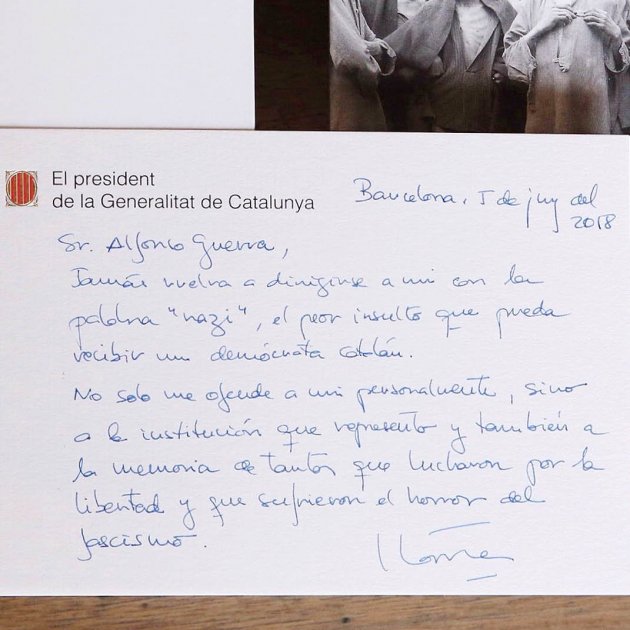 El president
de la Generalitat de Catalunya
Barcelona, 5 de juny del
2018
Sr. Alfonso Guerra,
Jamás vuelva a dirigirse a mi con la
palabra "nazi", el peor insulto que pueda
recibir un demócrata catalán.
No solo me ofende a mi personalmente, sino
a la institución que represento y también a
la memoria de tantos que lucharon por la
libertad y que sufrieron el horror del
fascismo.